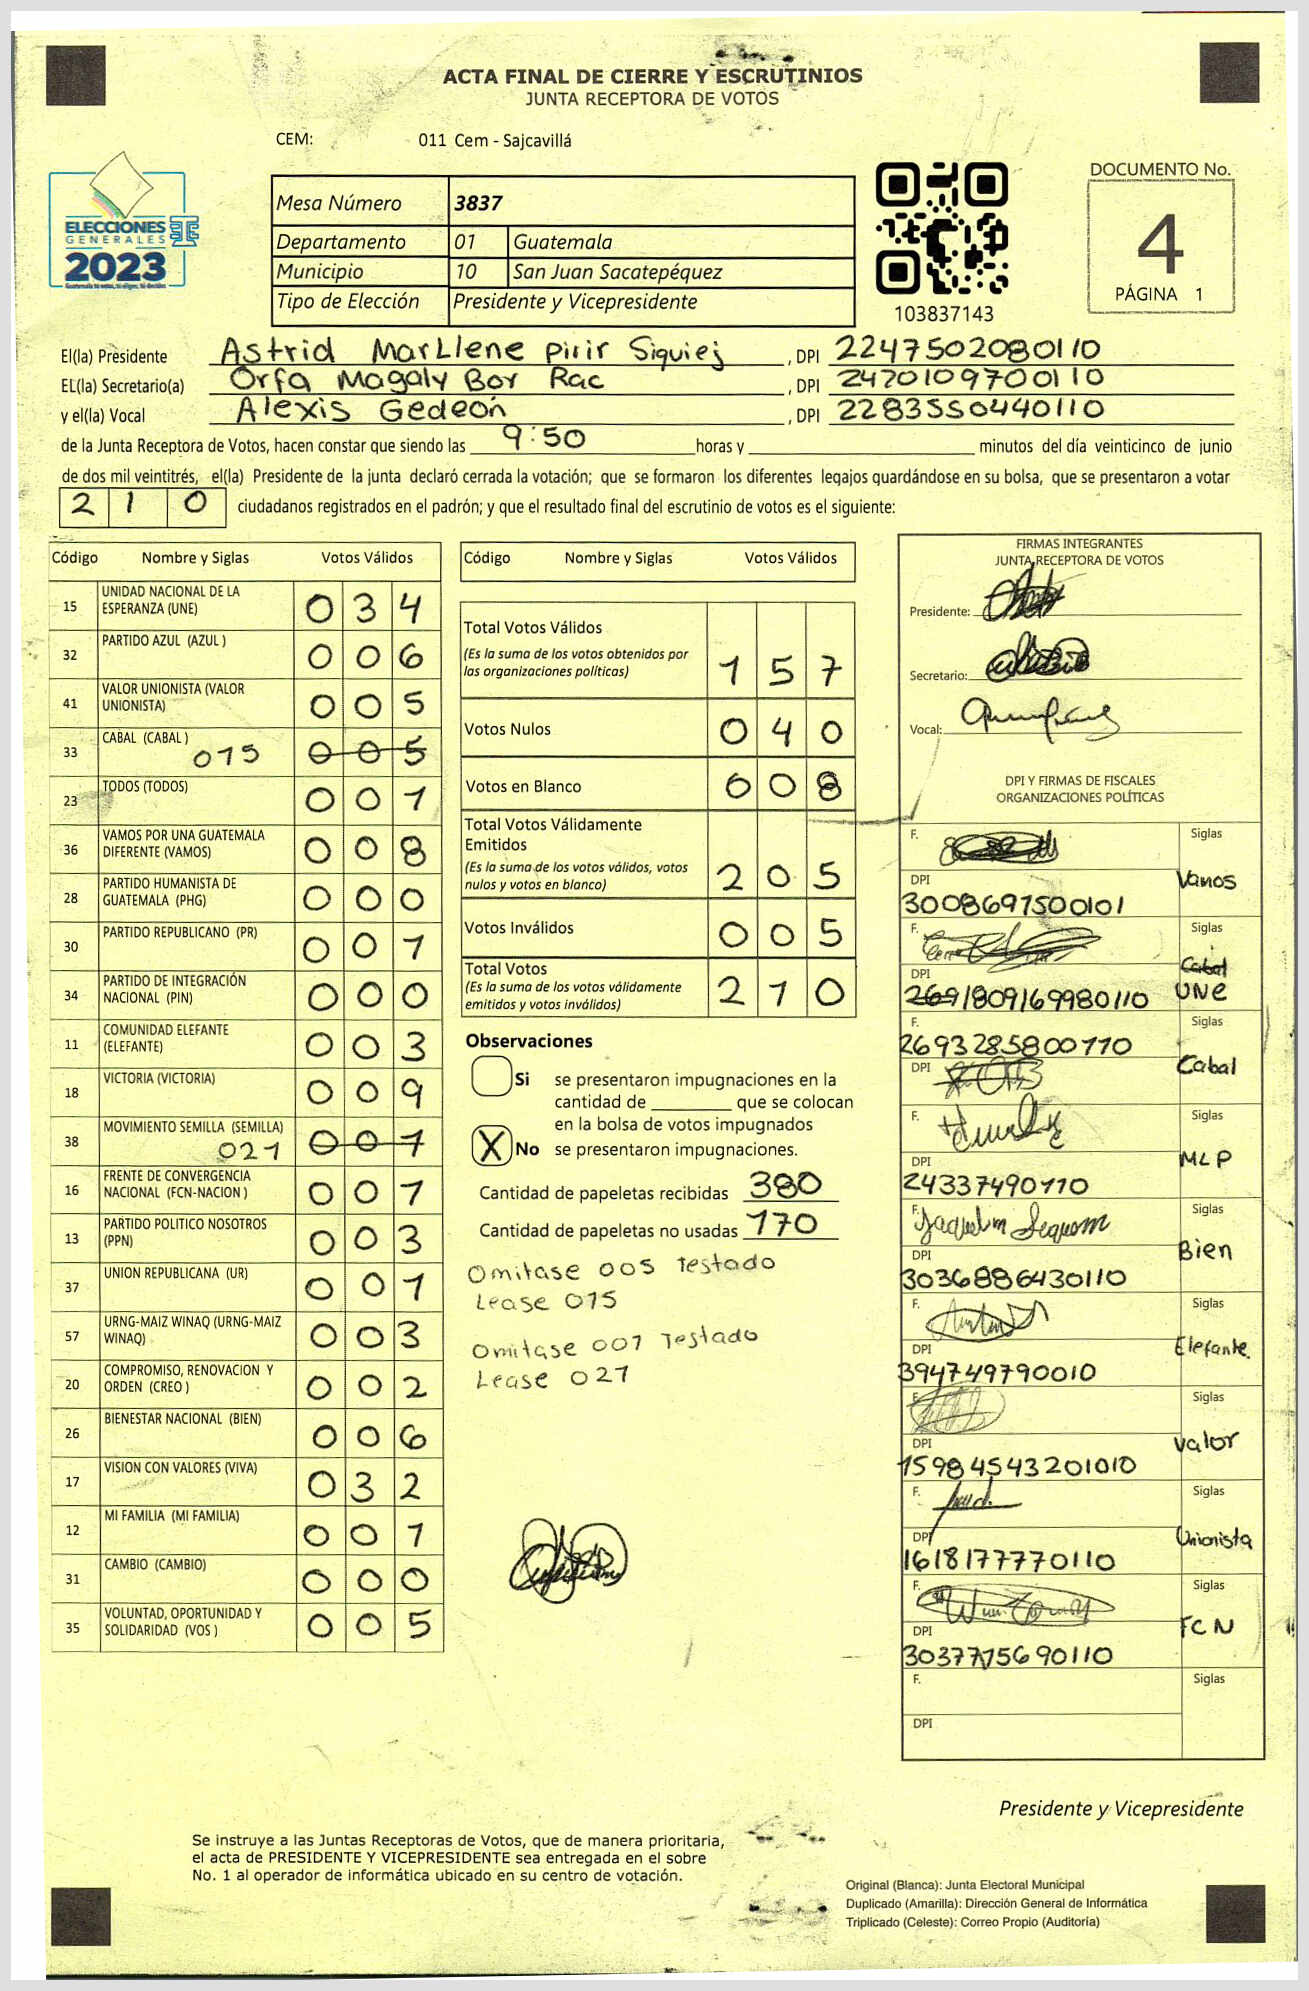 ACTA FINAL DE CIERRE Y ESCRUTINIOS
JUNTA RECEPTORA DE VOTOS
CEM: 011 Cem - Sajcavillá
ELECCIONES
GENERALES
2023
Guatemala tú votas, tú eliges, tú decides
Mesa Número 3837
Departamento 01 Guatemala
Municipio 10 San Juan Sacatepéquez
Tipo de Elección Presidente y Vicepresidente
103837143
DOCUMENTO No.
4
PÁGINA 1
El(la) Presidente Astrid MarLlene Pirir Siquiej, DPI 2247502080110
EL(la) Secretario(a) Orfa Magaly Bor Rac, DPI 2470109700110
y el(la) Vocal Alexis Gedeón, DPI 2283550440110
de la Junta Receptora de Votos, hacen constar que siendo las 9:50 horas y minutos del día veinticinco de junio
de dos mil veintitrés, el(la) Presidente de la junta declaró cerrada la votación; que se formaron los diferentes legajos guardándose en su bolsa, que se presentaron a votar
210 ciudadanos registrados en el padrón; y que el resultado final del escrutinio de votos es el siguiente:
Código Nombre y Siglas Votos Válidos
15 UNIDAD NACIONAL DE LA ESPERANZA (UNE) 034
32 PARTIDO AZUL (AZUL ) 006
41 VALOR UNIONISTA (VALOR UNIONISTA) 005
33 CABAL (CABAL ) 015 005
23 TODOS (TODOS) 001
36 VAMOS POR UNA GUATEMALA DIFERENTE (VAMOS) 008
28 PARTIDO HUMANISTA DE GUATEMALA (PHG) 000
30 PARTIDO REPUBLICANO (PR) 001
34 PARTIDO DE INTEGRACIÓN NACIONAL (PIN) 000
11 COMUNIDAD ELEFANTE (ELEFANTE) 003
18 VICTORIA (VICTORIA) 009
38 MOVIMIENTO SEMILLA (SEMILLA) 021 001
16 FRENTE DE CONVERGENCIA NACIONAL (FCN-NACION ) 001
13 PARTIDO POLITICO NOSOTROS (PPN) 003
37 UNION REPUBLICANA (UR) 001
57 URNG-MAIZ WINAQ (URNG-MAIZ WINAQ) 003
20 COMPROMISO, RENOVACION Y ORDEN (CREO ) 002
26 BIENESTAR NACIONAL (BIEN) 006
17 VISION CON VALORES (VIVA) 032
12 MI FAMILIA (MI FAMILIA) 001
31 CAMBIO (CAMBIO) 000
35 VOLUNTAD, OPORTUNIDAD Y SOLIDARIDAD (VOS ) 005
Código Nombre y Siglas Votos Válidos
Total Votos Válidos 157
(Es la suma de los votos obtenidos por
las organizaciones políticas)
Votos Nulos 040
Votos en Blanco 008
Total Votos Válidamente
Emitidos 205
(Es la suma de los votos válidos, votos
nulos y votos en blanco)
Votos Inválidos 005
Total Votos 210
(Es la suma de los votos válidamente
emitidos y votos inválidos)
Observaciones
Si se presentaron impugnaciones en la
cantidad de ________ que se colocan
en la bolsa de votos impugnados
X No se presentaron impugnaciones.
Cantidad de papeletas recibidas 380
Cantidad de papeletas no usadas 170
Omitase 005 Testado
Lease 015
Omitase 001 Testado
Lease 021
FIRMAS INTEGRANTES
JUNTA RECEPTORA DE VOTOS
Presidente:
Secretario:
Vocal:
DPI Y FIRMAS DE FISCALES
ORGANIZACIONES POLÍTICAS
F. Siglas
DPI Vamos
3008697500101
F. Siglas
DPI Cabal
1809169980110 UNE
F. Siglas
2693285800110
DPI Cabal
F. Siglas
DPI MLP
24337490110
F. Jaquelin Siglas
DPI Bien
3036886430110
F. Siglas
DPI Elefante
394749790010
F. Siglas
DPI Valor
15984543201010
F. Siglas
DPI Unionista
1618177770110
F. Siglas
DPI FCN
3037715690110
F. Siglas
DPI
Presidente y Vicepresidente
Se instruye a las Juntas Receptoras de Votos, que de manera prioritaria,
el acta de PRESIDENTE Y VICEPRESIDENTE sea entregada en el sobre
No. 1 al operador de informática ubicado en su centro de votación.
Original (Blanca): Junta Electoral Municipal
Duplicado (Amarilla): Dirección General de Informática
Triplicado (Celeste): Correo Propio (Auditoría)